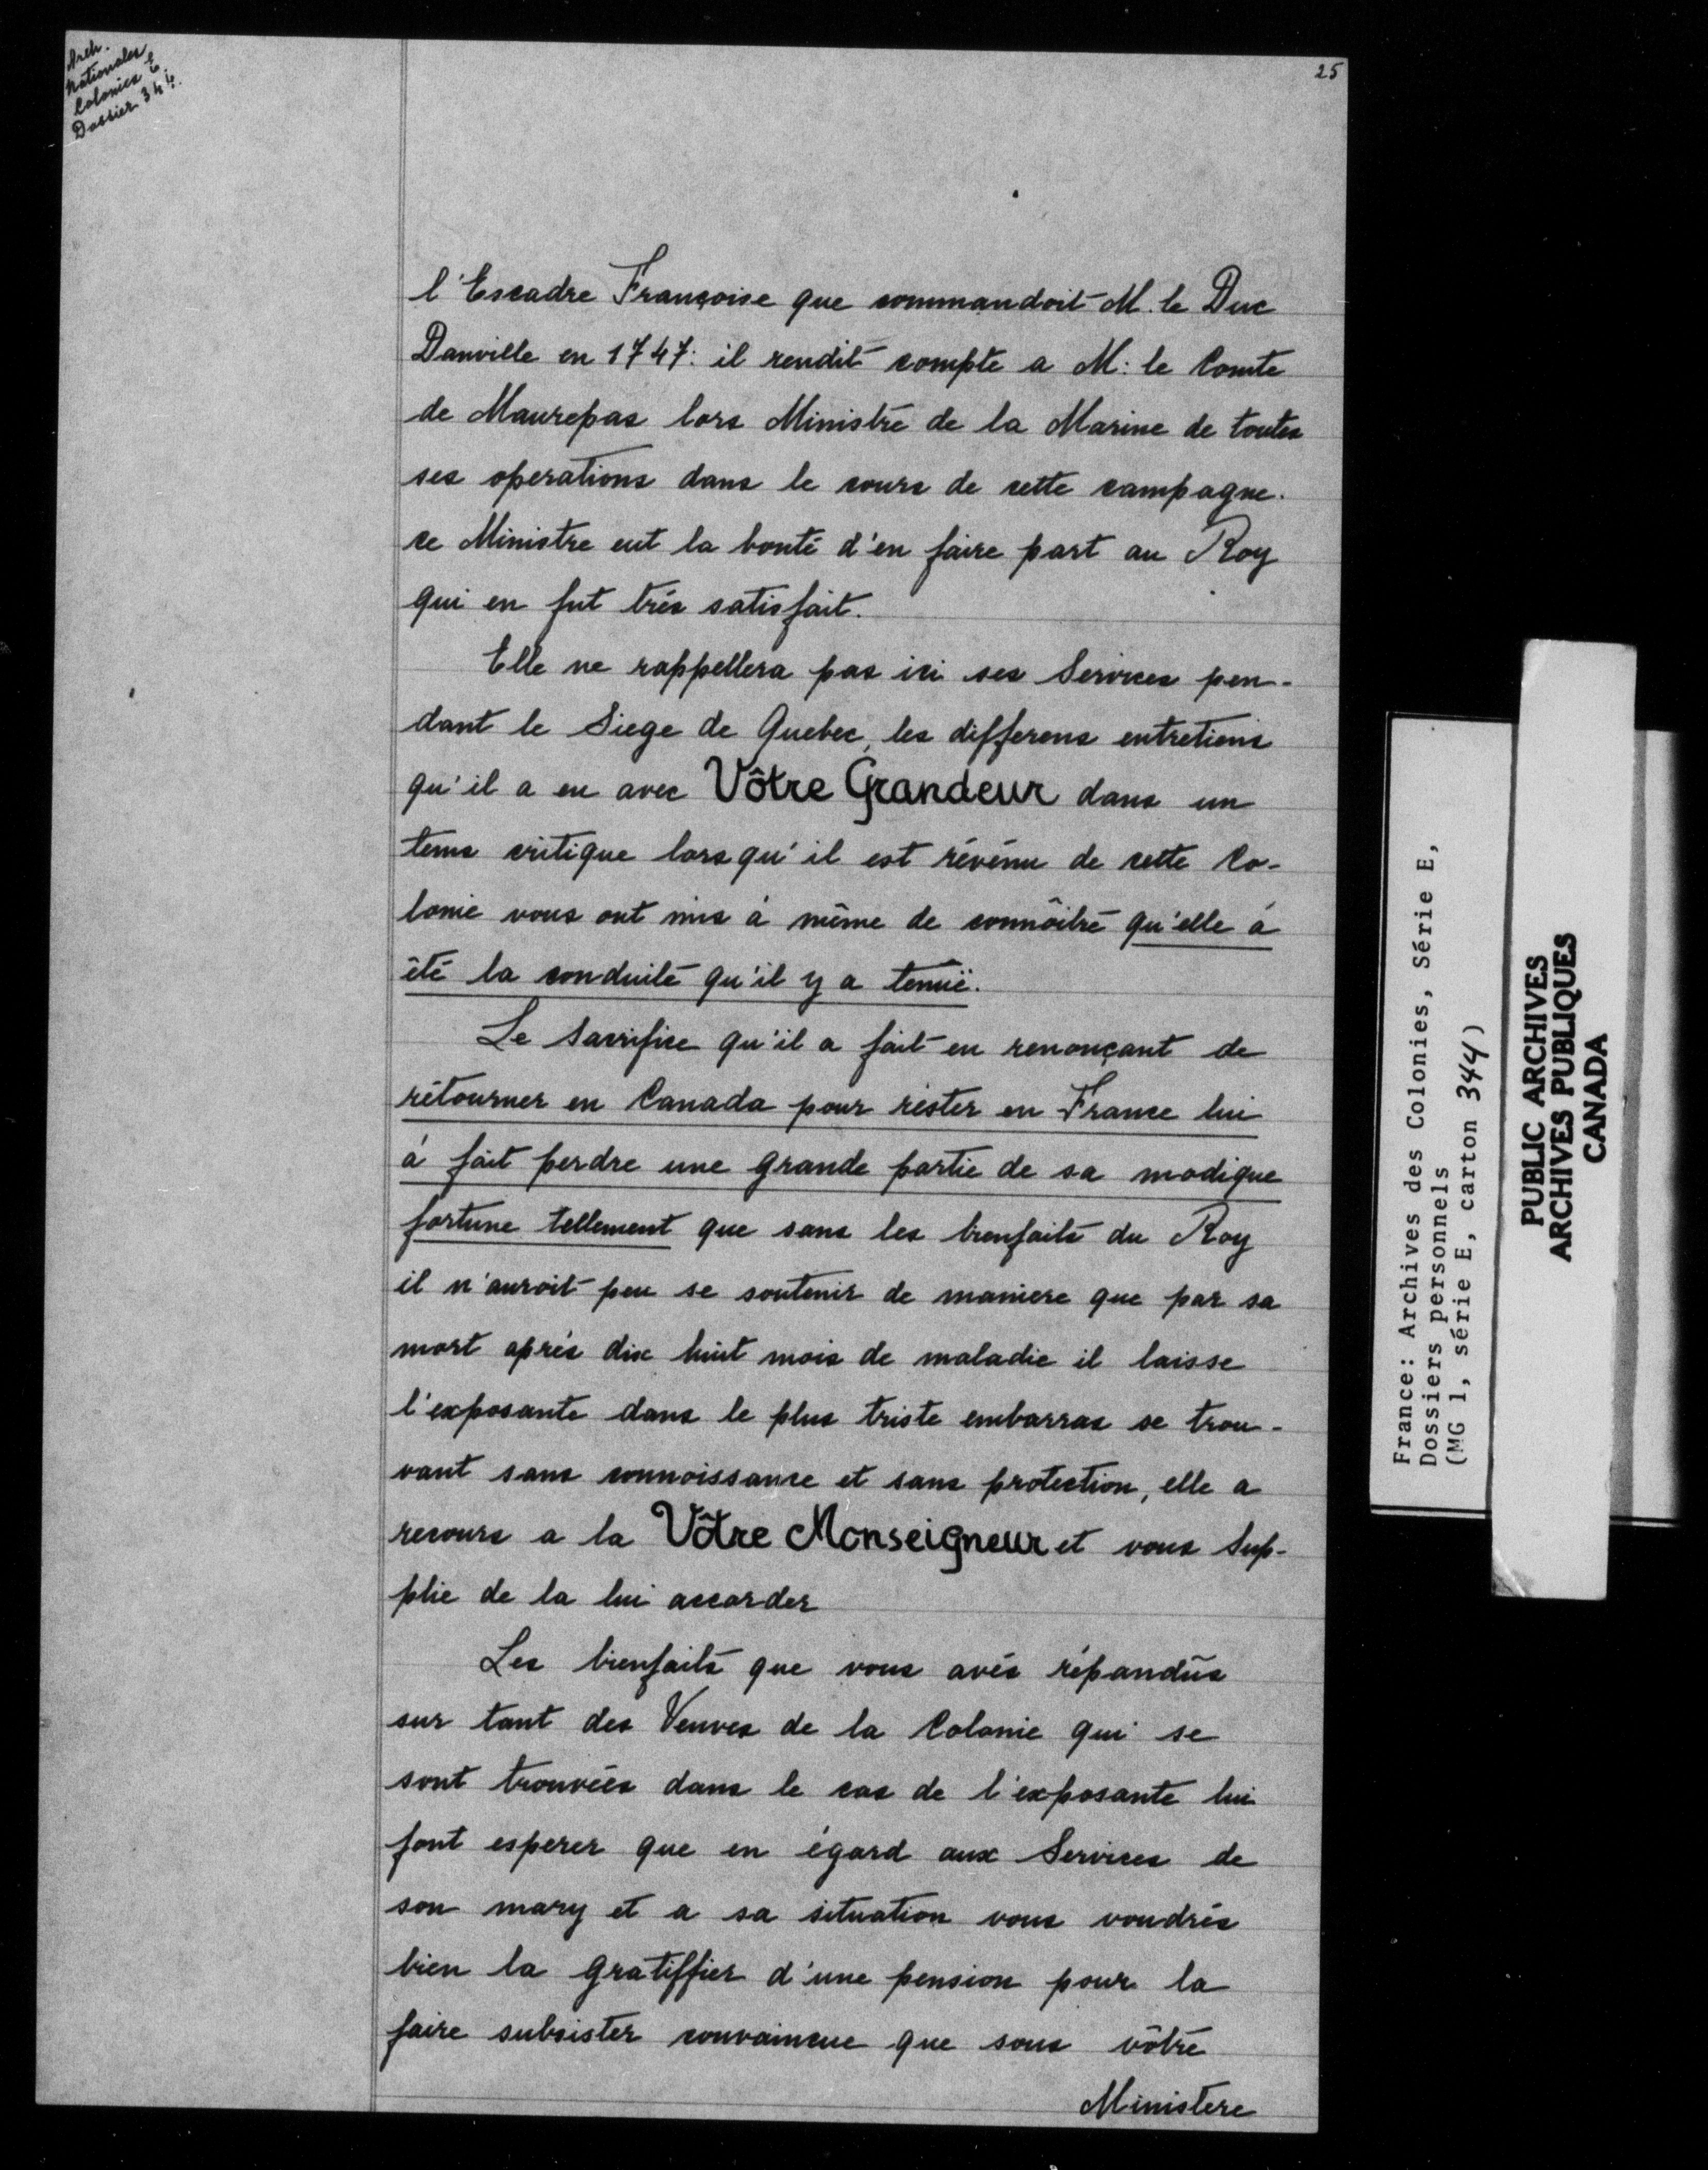 Arch.
Nationales
Colonies E.
Dossier 344.
25
l'Escadre Françoise que commandoit M. le Duc
Danville en 1747: il rendit compte a M: le Comte
de Maurepas lors Ministre de la Marine de toutes
ses operations dans le cours de cette campagne.
ce Ministre eut la bonté d'en faire part au Roy
qui en fut trés satisfait.
Elle ne rappellera pas ici ses Services pen-
dant le Siege de Quebec, les differens entretiens
qu'il a eu avec Vôtre Grandeur dans un
tems critique lorsqu'il est révénu de cette Co-
lonie vous ont mis á même de connôitre qu'elle á
été la conduite qu'il y a tenuë.
Le Sacrifice qu'il a fait en renonçant de
rétourner en Canada pour réster en France lui
á fait perdre une grande partie de sa modique
fortune tellement que sans les bienfaits du Roy
il n'auroit peu se soutenir de maniere que par sa
mort aprés dix huit mois de maladie il laisse
l'exposante dans le plus triste embarras se trou-
vant sans connoissance et sans protection, elle a
recours a la Vôtre Monseigneur et vous Sup-
plie de la lui accorder
Les bienfaits que vous avés répandûs
sur tant des Veuves de la Colonie qui se
sont trouvées dans le cas de l'exposante lui
font esperer que en égard aux Services de
son mary et a sa situation vous voudrés
bien la gratiffier d'une pension pour la
faire subsister convaincue que sous vôtre
Ministere
France: Archives des Colonies, Série E,
Dossiers personnels
(MG 1, série E, carton 344)
PUBLIC ARCHIVES
ARCHIVES PUBLIQUES
CANADA